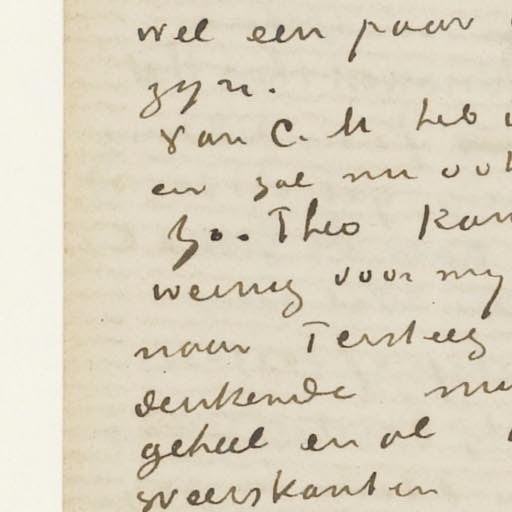 wel een paar
zyn.
Van C. M heb
en zal nu ook
Zo. Theo kan
weinig voor my
naar Tersteeg
denkende
geheel en al
weerskanten